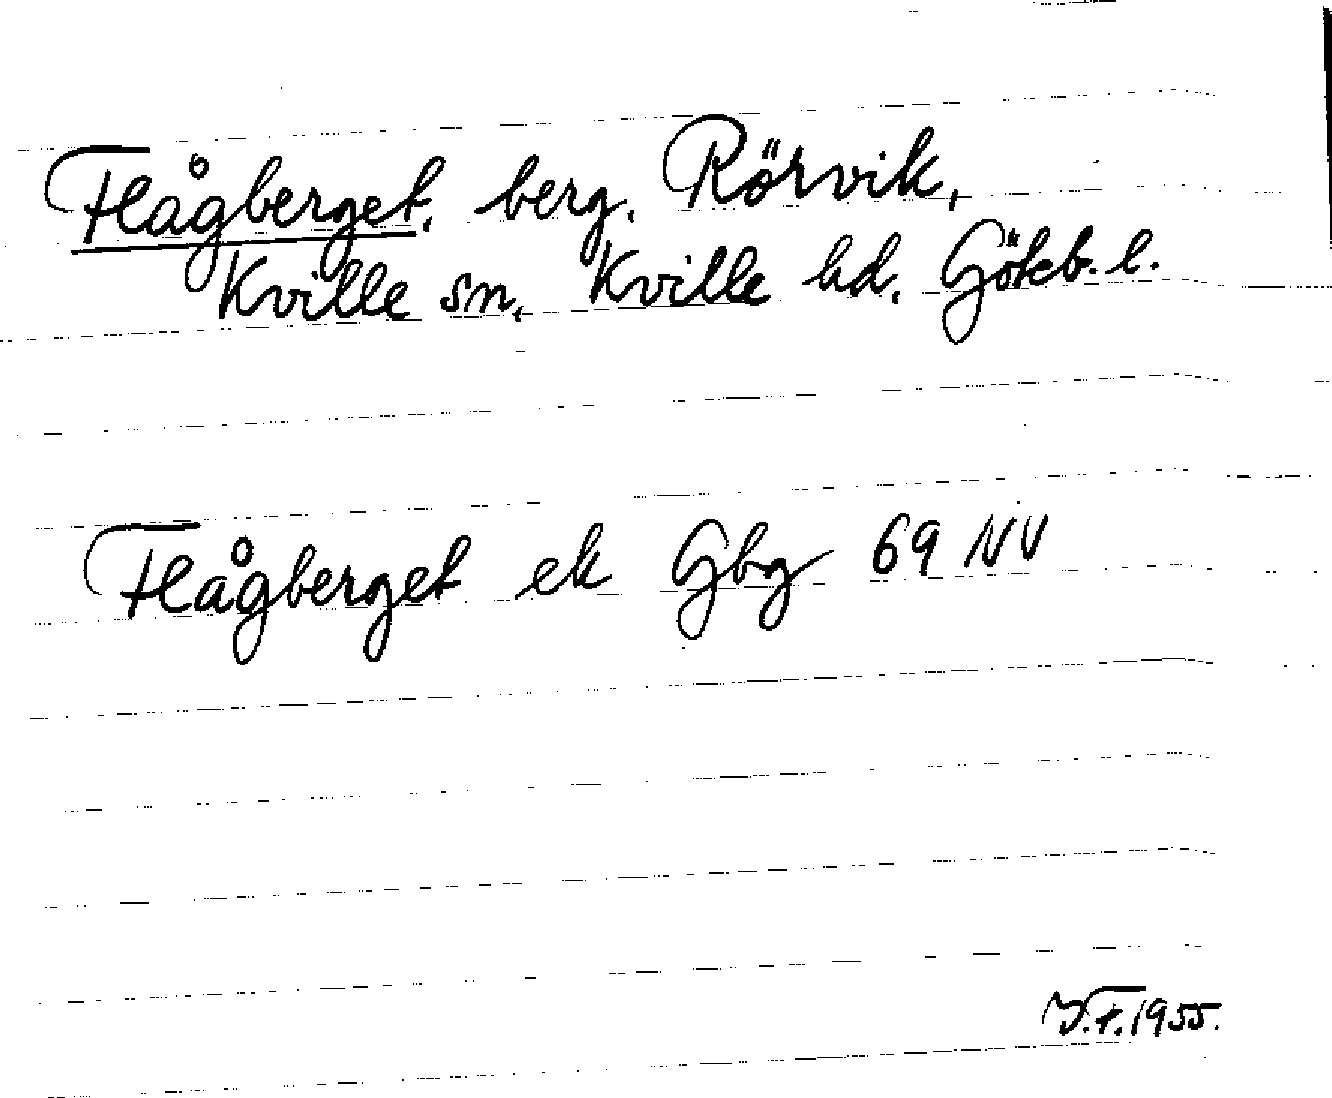 Flågberget, berg, Rörvik,
Kville sn, Kville hd, Göteb. l.
Flågberget ek Gbg 69 NV
F. 1955.